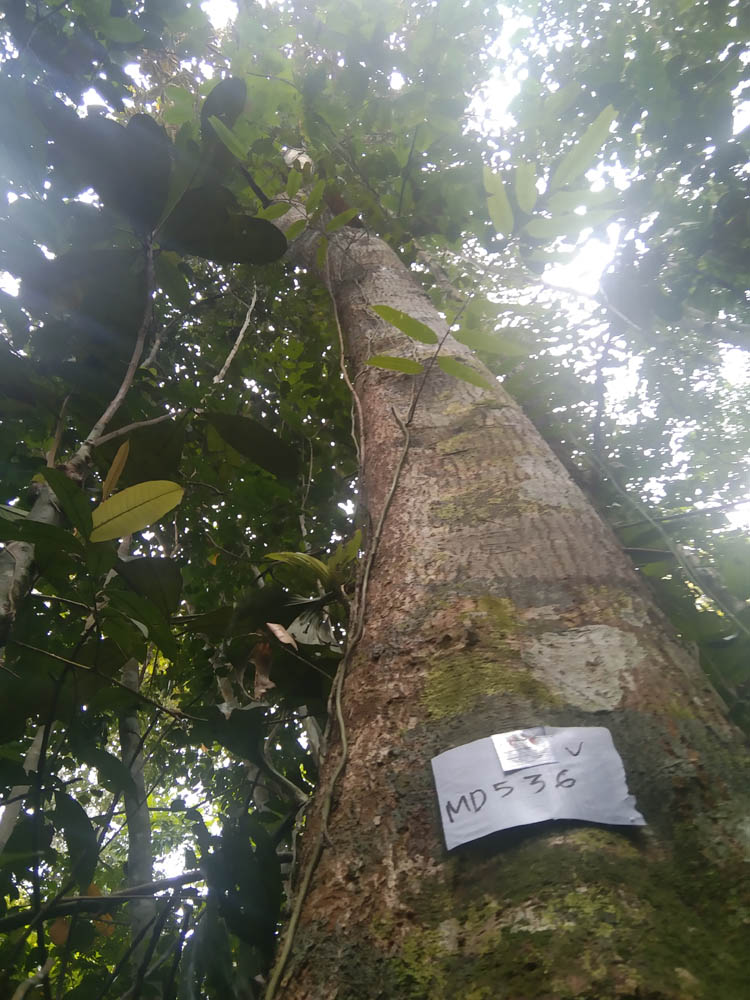 V
MD536